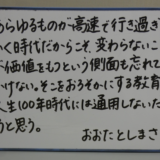 あらゆるものが高速で行き過ぎ
いく時代だからこそ、変わらないこ
が価値をもつという側面も忘れて
いけない。そこをおろそかにする教育
人生100年時代には通用しないだ
うと思う。
おおたとしまさ